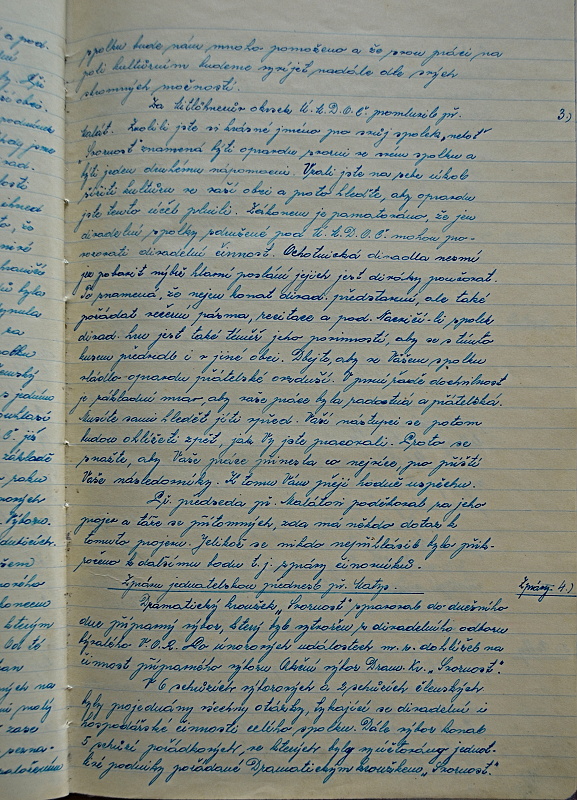 spolku bude nám mnoho pomoženo a že svou prací na
poli kulturním budeme vyvíjet nadále dle svých
skromných možností.
Za okrsek Ú.M.D.O.Č. promluvil př. 3.)
Malát. Zvolili jste si krásné jméno pro svůj spolek, neboť
"Svornost" znamená býti opravdu svorni ve svém spolku a
býti jeden druhému nápomocni. Vzali jste na sebe úkol
šířiti kulturu ve vaší obci a proto hleďte, aby opravdu
jste tento účel plnili. Zákonem je pamatováno, že jen
divadelní spolky sdružené pod Ú.M.D.O.Č. mohou pro-
vozovati divadelní činnost. Ochotnická divadla nesmí
jen pobavit nýbrž hlavní poslání jejich jest diváky poučovat.
To znamená, že nejen konat divad. představení, ale také
pořádat večerní pásma, recitace a pod. Nacvičí-li spolek
divad. hru jest také téměř jeho povinností, aby se s tímto
kusem předvedl i v jiné obci. Dbejte, aby ve Vašem spolku
vládlo opravdu přátelské ovzduší. V první řadě dochvilnost
je základní mrav, aby vaše práce byla radostná a přátelská.
Musíte sami hledět jíti vpřed. Vaši nástupci se potom
budou ohlížeti zpět, jak Vy jste pracovali. Proto se
snažte, aby Vaše práce přinesla co nejvíce, pro příští
Vaše následovníky. K tomu Vám přeji hodně úspěchu.
Př. předseda př. Malátovi poděkoval za jeho
projev a táže se přítomných, zda má někdo dotaz k
tomuto projevu. Jelikož se nikdo nepřihlásil bylo přik-
ročeno k dalšímu bodu t. j. zprávy činovníků.
Zprávu jednatelskou přednesl př. Matys. Zprávy. 4.)
Dramatický kroužek "Svornost" spravoval do dnešního
dne přípravný výbor, který byl vytvořen z divadelního odboru
bývalého K.O.R. Po únorových událostech m. r. dohlížel na
činnost přípravného výboru Akční výbor Dram. kr. "Svornost".
V 6 schůzích výborových a 2 schůzích členských
byly projednány všechny otázky, týkající se divadelní i
hospodářské činnosti celého spolku. Dále výbor konal
5 schůzí pořádkových, ve kterých byly vyúčtovány jednot-
livé podniky pořádané Dramatickým kroužkem "Svornost".